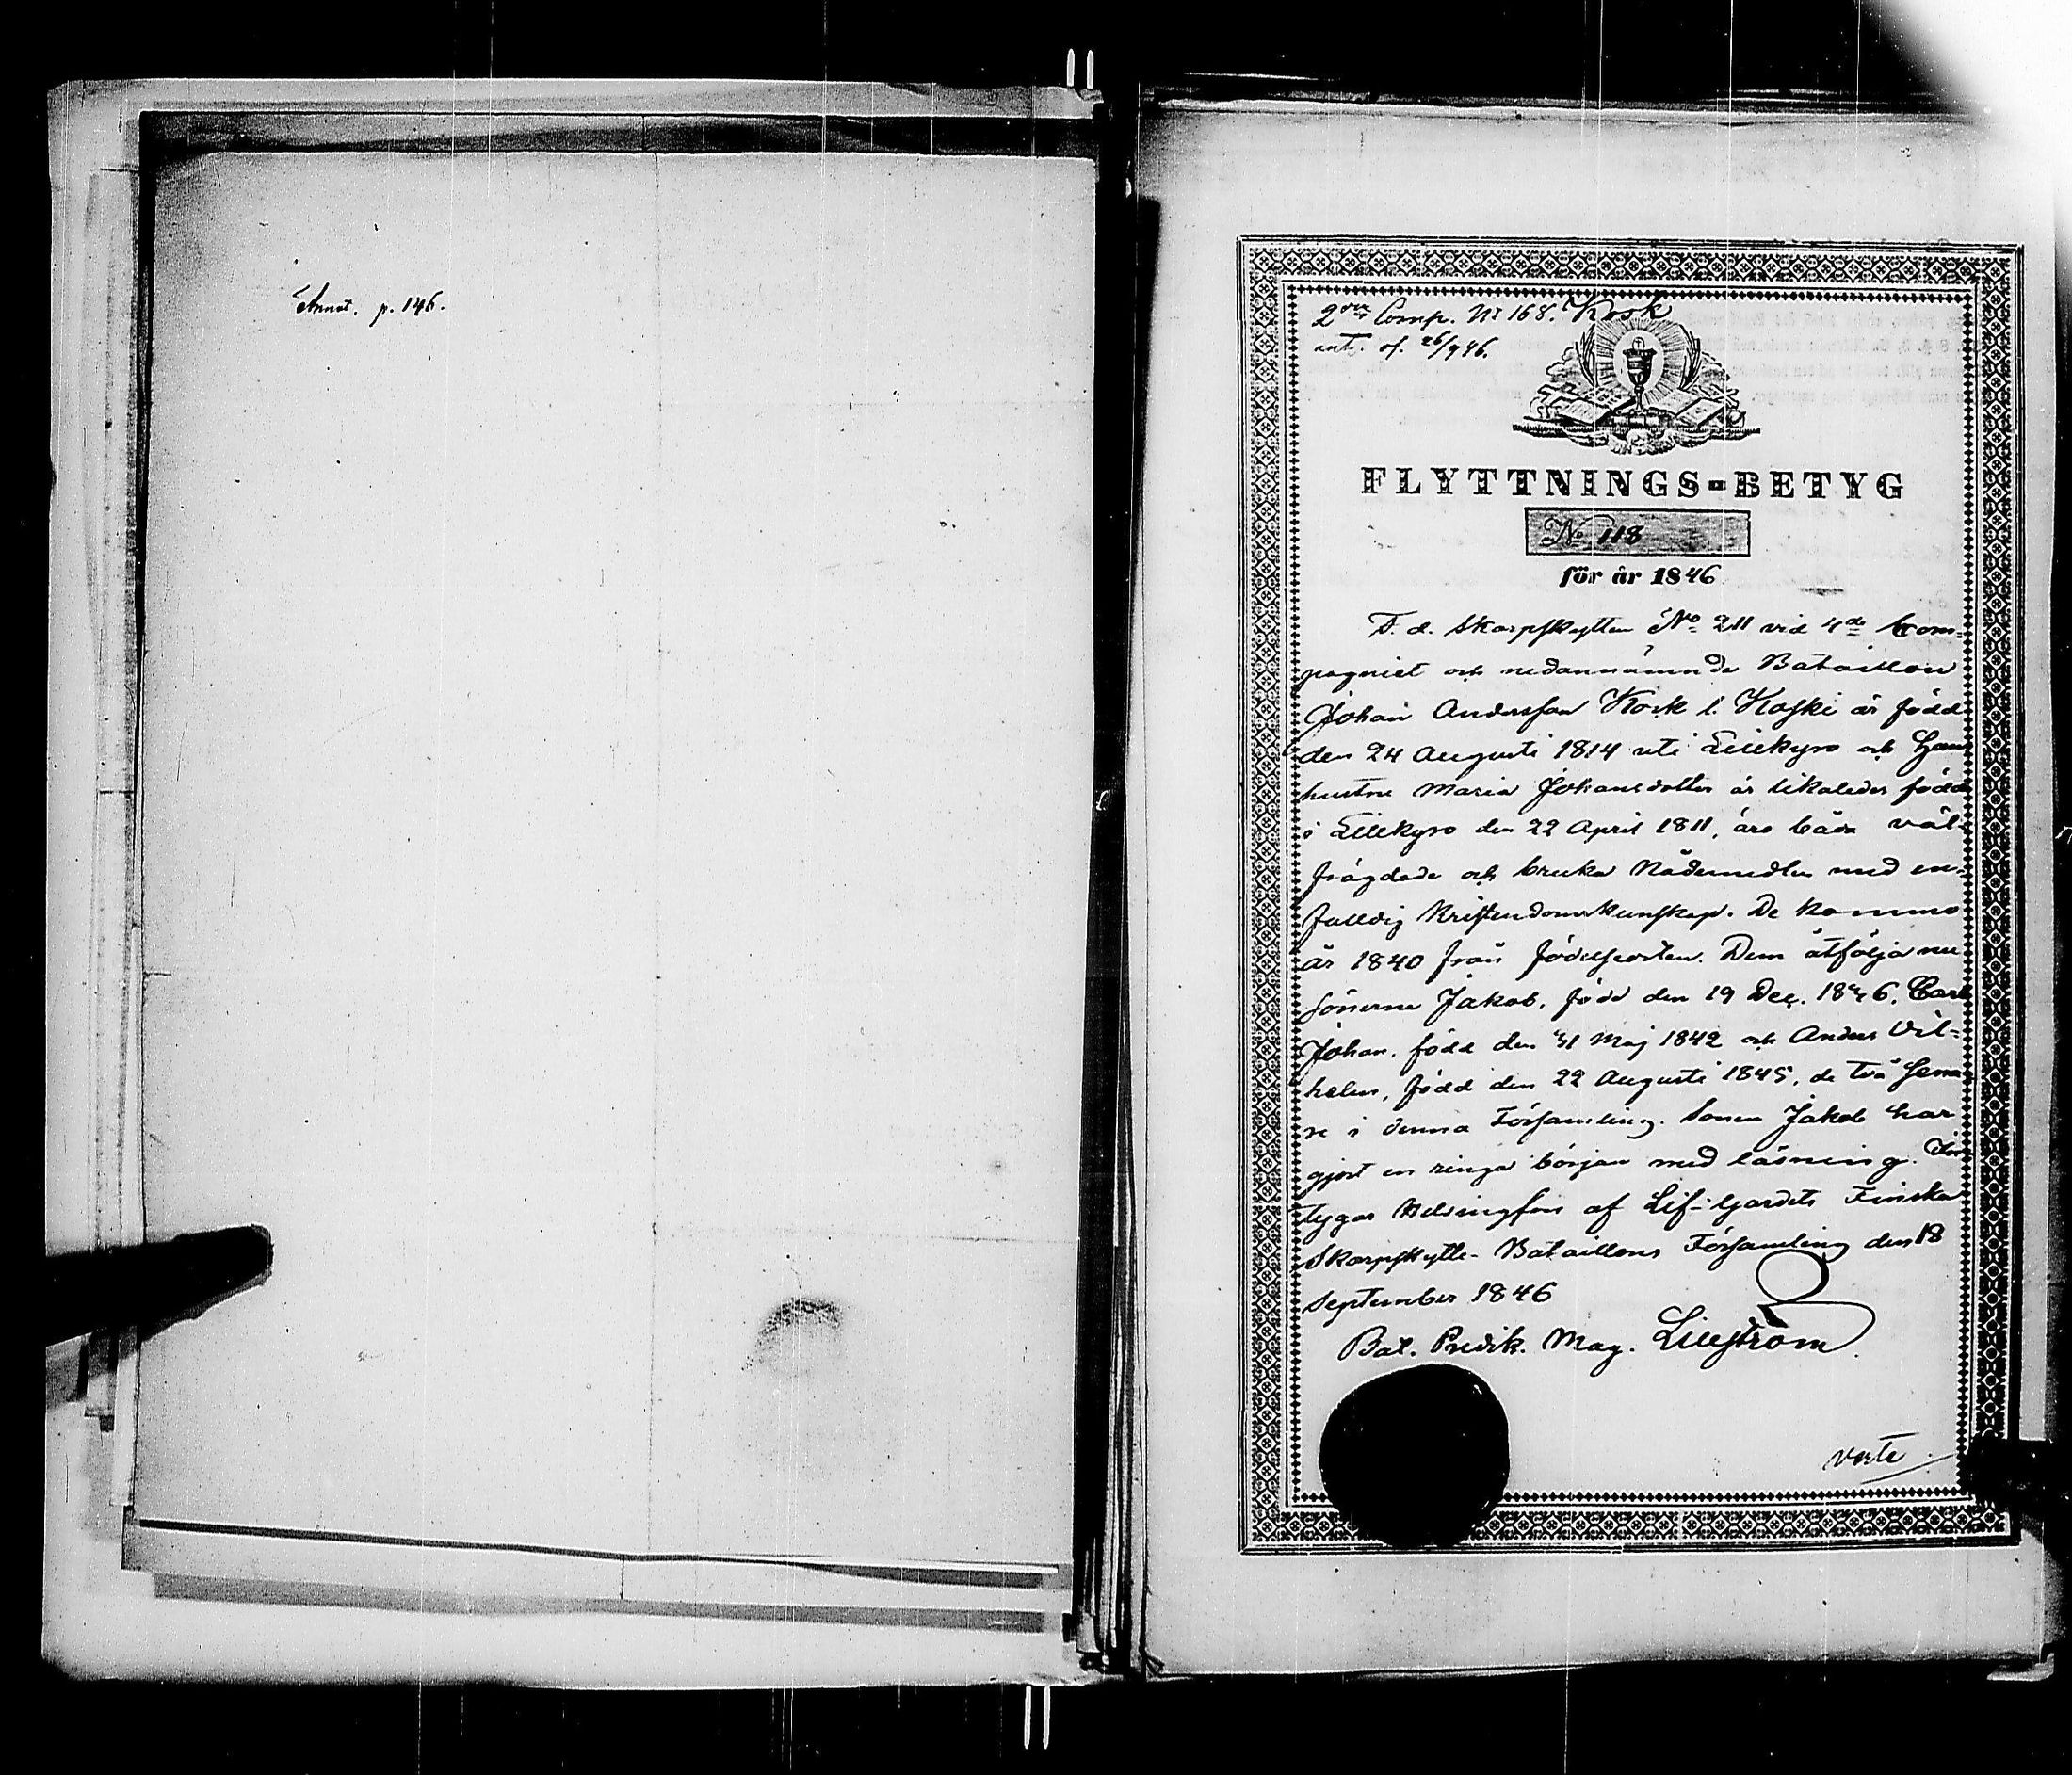 Annot. p. 146.
2dra Comp. No 168. Kosk
ant. of. 26/9 46.
FLYTTNINGS-BETYG
No 118
för år 1846
F. d. Skarpskytten No 211 vid 4de Com-
pagniet och nedannämnde Bataillon
Johan Andersson Kosk l. Koski är född
den 24 Augusti 1814 uti Lillkyro och Hans
hustru Maria Johansdotter är likaledes född
i Lillkyro den 22 April 1811, äro båda väl-
frägdade och bruka Nådemedlen med en-
faldig Kristendomskunskap. De kommo
år 1840 från födelseorten. Dem åtfölja nu
sönerne Jakob, född den 19 Dec. 1836, Carl
Johan, född den 31 Maj 1842 och Anders Vil-
helm, född den 22 Augusti 1845, de två sena-
re i denna Församling. Sonen Jakob har
gjort en ringa början med läsning.
tygar Helsingfors af Lif-Gardets Finska
Skarpskytte-Bataillons Församling den 18
September 1846
Bat. Predik. Mag. Lillström.
verte